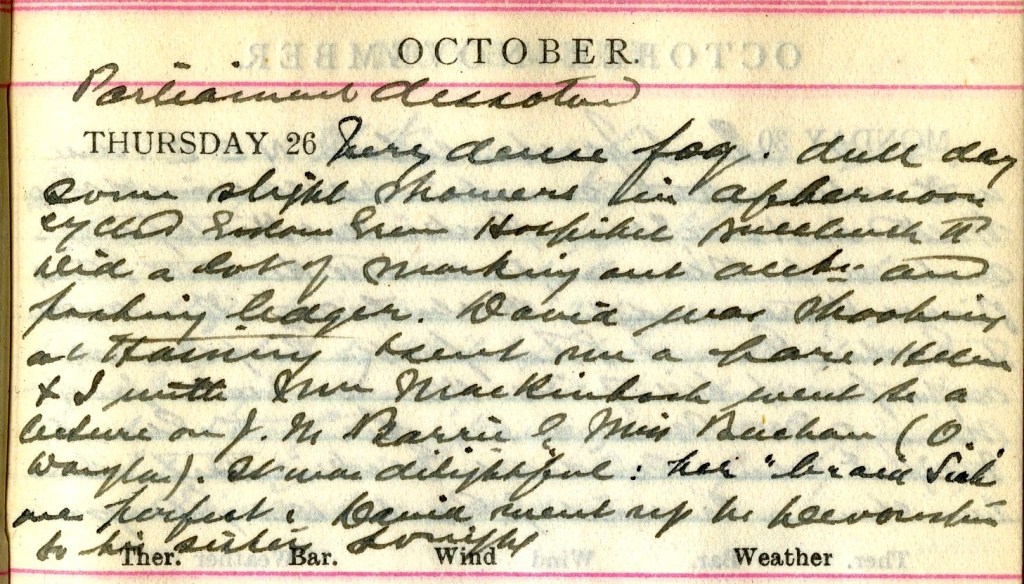 OCTOBER.
Parliament dissolved
THURSDAY 26 Very dense fog. dull day
some slight showers in afternoon
cycled Green Hospital Buccleuch St
Did a lot of marking out accts. and
posting ledger. David was shooting
at & sent me a hare. Helen
& I with Mrs MacKintosh went to a
lecture on J. M Barrie by Miss Buchan (O.
Douglas). It was delightful: her "braid Scots"
was perfect: David went up to Devonshire
to his sister tonight
Ther. Bar. Wind Weather